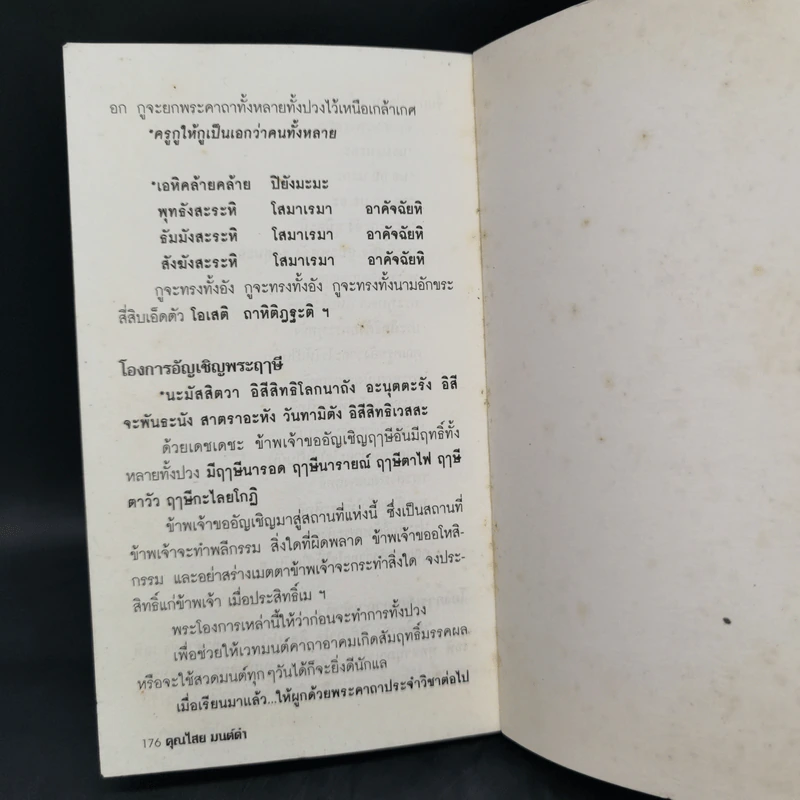 อก กูจะยกพระคาถาทั้งหลายทั้งปวงไว้เหนือเกล้าเกศ
*ครูกูให้กูเป็นเอกว่าคนทั้งหลาย
*เอหิคล้ายคล้าย ปิยังมะมะ
พุทธังสะระหิ โสมาเรมา อาคัจฉัยหิ
ธัมมังสะระหิ โสมาเรมา อาคัจฉัยหิ
สังฆังสะระหิ โสมาเรมา อาคัจฉัยหิ
กูจะทรงทั้งอัง กูจะทรงทั้งอัง กูจะทรงทั้งนามอักขระ
สี่สิบเอ็ดตัว โอเสติ ถาหิติฏฐะติ ฯ
โองการอัญเชิญพระฤๅษี
*นะมัสสิตวา อิสีสิทธิโลกนาถัง อะนุตตะรัง อิสี
จะพันธะนัง สาตราอะหัง วันทามิตัง อิสีสิทธิเวสสะ
ด้วยเดชเดชะ ข้าพเจ้าขออัญเชิญฤๅษีอันมีฤทธิ์ทั้ง
หลายทั้งปวง มีฤๅษีนารอด ฤๅษีนารายณ์ ฤๅษีตาไฟ ฤๅษี
ตาวัว ฤๅษีกะไลยโกฏิ
ข้าพเจ้าขออัญเชิญมาสู่สถานที่แห่งนี้ ซึ่งเป็นสถานที่
ข้าพเจ้าจะทำพลีกรรม สิ่งใดที่ผิดพลาด ข้าพเจ้าขออโหสิ
กรรม และอย่าสร่างเมตตาข้าพเจ้าจะกระทำสิ่งใด จงประ-
สิทธิ์แก่ข้าพเจ้า เมื่อประสิทธิ์เม ฯ
พระโองการเหล่านี้ให้ว่าก่อนจะทำการทั้งปวง
เพื่อช่วยให้เวทมนต์คาถาอาคมเกิดสัมฤทธิ์มรรคผล
หรือจะใช้สวดมนต์ทุกๆวันได้ก็จะยิ่งดีนักแล
เมื่อเรียนมาแล้ว...ให้ผูกด้วยพระคาถาประจำวิชาต่อไป
176 คุณไสย มนต์ดำ